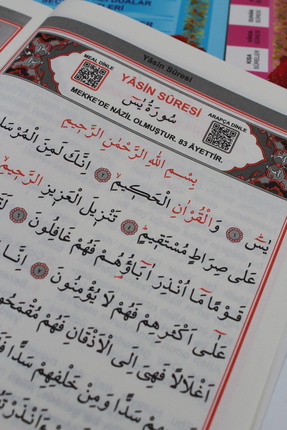 DUALAR
Yâsîn Sûresi
MEAL DİNLE
YÂSÎN SÛRESİ
ARAPÇA DİNLE
سُورَةُ يٰسٓ
MEKKE'DE NÂZİL OLMUŞTUR. 83 ÂYETTİR.
بِسْمِ اللّٰهِ الرَّحْمٰنِ الرَّحٖيمِ
يٰسٓ ١ وَالْقُرْاٰنِ الْحَكٖيمِ ٢ اِنَّكَ لَمِنَ الْمُرْسَلٖ
عَلٰى صِرَاطٍ مُسْتَقٖيمٍ ٤ تَنْزٖيلَ الْعَزٖيزِ الرَّحٖيمِ
قَوْمًا مَٓا اُنْذِرَ اٰبَٓاؤُهُمْ فَهُمْ غَافِلُونَ ٦
عَلٰٓى اَكْثَرِهِمْ فَهُمْ لَا يُؤْمِنُونَ ٧ اِنَّا
اَغْلَالًا فَهِىَ اِلَى الْاَذْقَانِ فَهُمْ مُقْمَحُو
سَدًّا وَمِنْ خَلْفِهِمْ سَدًّا